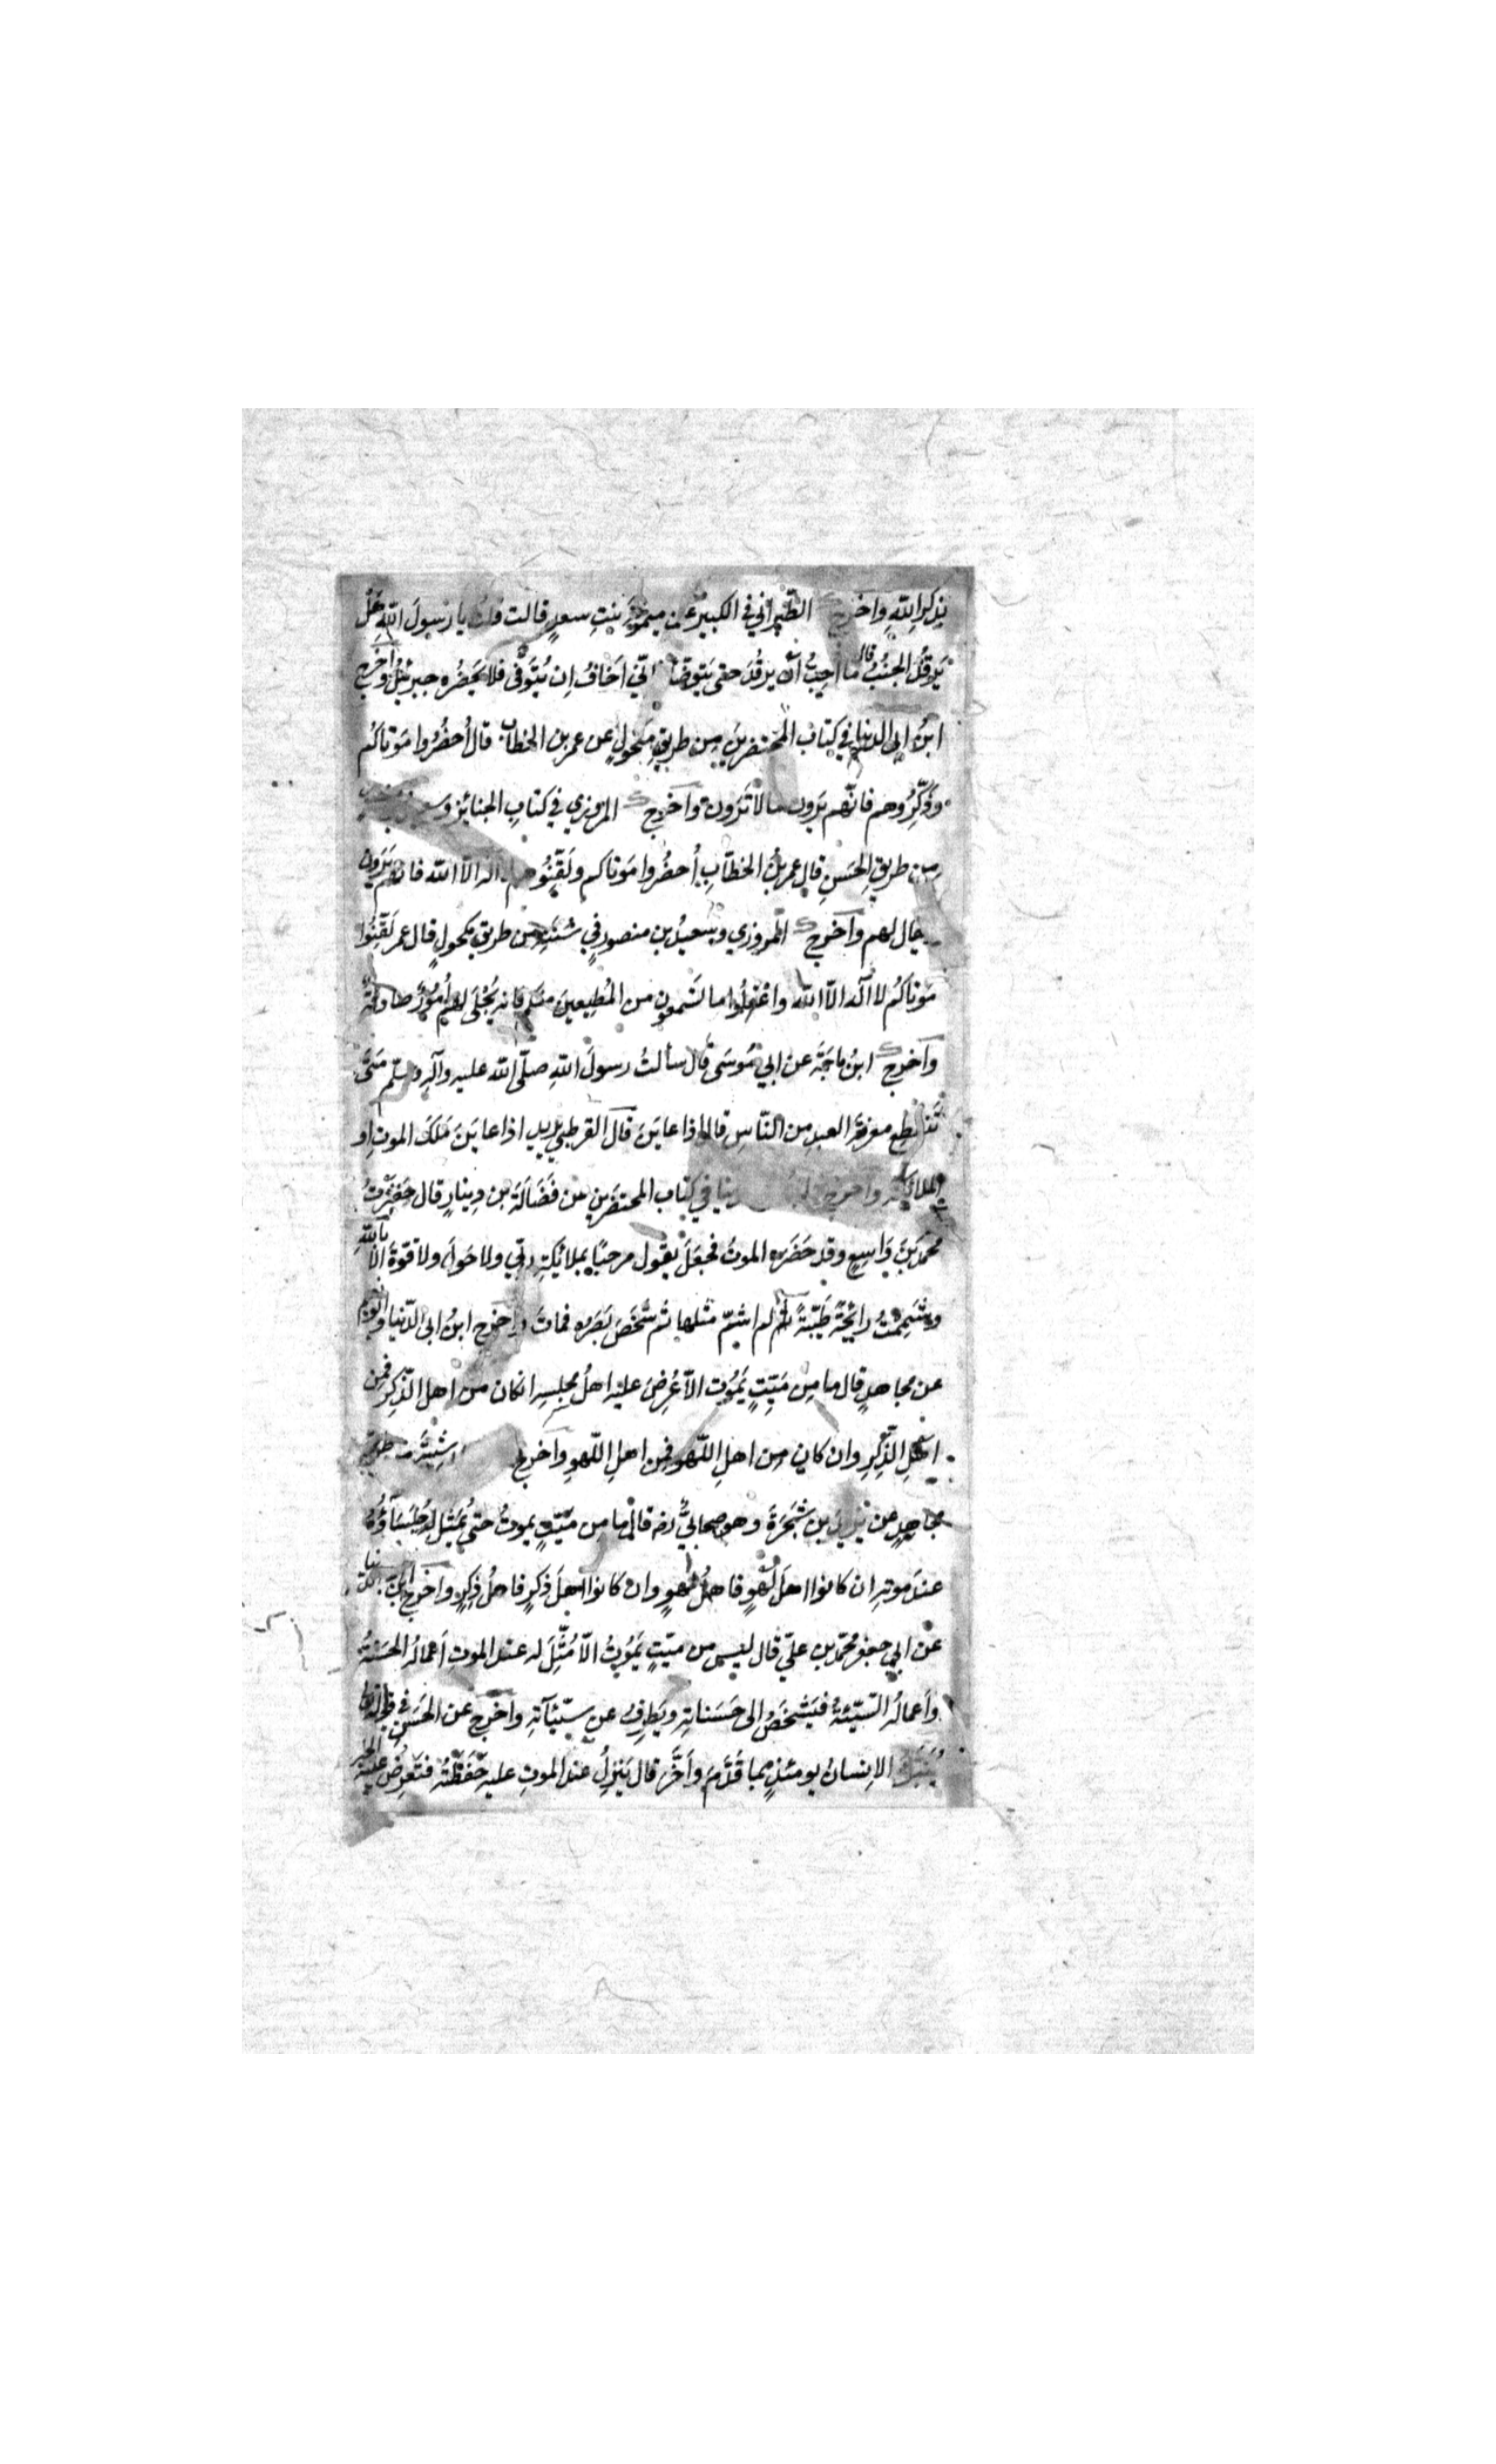 بذكرِ اللهِ واَخرج الطَّبرانيُّ في الكبير عن ميمونةَ بنتِ سعدٍ قالت قلتُ يا رسولَ اللهِ هَلْ
يَرقُدُ الجنُبُ قال ما اُحِبُّ اَنْ يرقُدَ حتى يتوضأ انّي اَخافُ اِن يُتَوفّى فلا يَحضُره جبرئيلُ واَخرج
ابنُ ابى الدنيا في كتاب المحتضرينَ مِن طريقِ مكحولٍ عن عمر بن الخطاب قال اُحضُروا مَوتاكُم
وذَكِّروهم فانّهم يَرون ما لا تَرون واَخرج المروزي في كتابِ الجنائز و
مِن طريقِ الحَسنِ قال عمر بنُ الخطّابِ اُحضُروا مَوتاكم ولَقِّنُوهم لا اله الّا الله فانهم يَرَون
يقال لهم واَخرج المروزي وسعيدُ بن منصورٍ في سُننِه من طريق مكحولٍ قال عمر لَقِّنُوا
مَوتاكُم لا اله الّا الله واعْقِلُوا ما تَسمعون من المُطِيعينَ منكم فانه يُجْلَى لهم اُمُورٌ صادقةٌ
واَخرج ابنُ ماجَةَ عن ابي مُوسَى قال سألتُ رسولَ اللهِ صلّى الله عليه وآلِه وسلّم مَتَى
تَنقطع معرفةُ العبدِ من النّاسِ قال اذا عايَنَ قال القرطبي يريد اذا عايَنَ مَلَكَ الموتِ او
الملائكة واَخرج ابن ابى الدنيا في كتاب المحتضَرين عن فَضَالَةَ بن دِينارٍ قال حَضَرْتُ
محمّدَ بنَ وَاسِعٍ وقد حَضَره الموتُ فجعَلَ يقول مرحبًا بملائكةِ ربّي ولا حَولَ ولا قوّةَ الّا بالله
وشَمِمْتُ رائِحَةً طَيّبةً لم اشمّ مثلها ثم شَخَصَ بَصَره فماتَ واَخرج ابنُ ابى الدّنيا وابو نعيم
عن مجاهدٍ قال ما مِن مَيّتٍ يَموُت الّا عُرِضَ عليه اهلُ مجلسِه ان كان من اهل الذّكرِ فمِن
اهلِ الذّكرِ وان كان مِن اهلِ اللّهو فمِن اهلِ اللّهوِ واَخرج
مجاهدٍ عن يزيدَ بن شَجَرَةَ وهو صحابيٌّ رضه قال ما مِن ميّتٍ يموتُ حتى يُمثَّل له جُلَساؤُهُ
عندَ موتِه ان كانوا اهلَ لَهْوٍ فاهلُ لهوٍ وان كانوا اهلَ ذِكرٍ فاهلُ ذِكرٍ واَخرج ابنُ ابى الدنيا
عن ابي جعفر محمّد بن عليّ قال ليس من ميّتٍ يَمُوتُ الّا مُثِّلَ له عند الموتِ اَعمالُه الحسَنَةُ
واَعمالُه السّيّئةُ فيَشخَصُ الى حَسَناتِه ويَطرِفُ عن سيّئآتِه واَخرج عن الحَسَنِ في قوله تعالى
يُنَبَّؤُ الانسانُ يومئذٍ بما قَدَّمَ واَخَّرَ قال يَنزِلُ عند الموتِ عليه حَفَظَتُه فتَعرِضُ عليه الخير